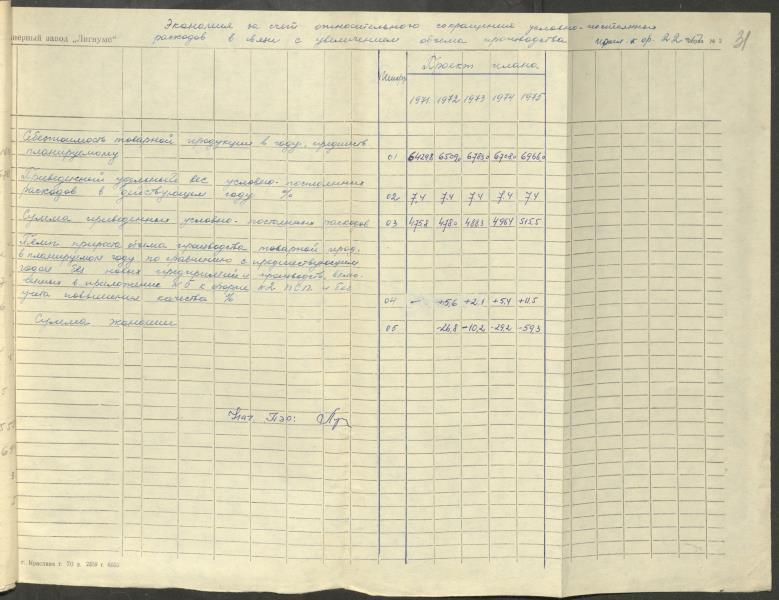 Экономия за счет относительного сокращения условно-постоянных
расходов в связи с увеличением объема производства
нерный завод „Лигнумс" 31
Проект плана
1971 1972 1973 1974 1975
Себестоимость товарной продукции в году, предшеств.
планируемому 01 64298
Приведенный удельный вес условно-постоянных
расходов в действующем году % 02 7,4 7,4 7,4 7,4 7,4
Сумма приведенных условно-постоянных расходов 03 4758 4780 4883 4964 5155
Темп прироста объема производства товарной прод.
в планируемом году по сравнению с предшествующим
годом новых предприятий и производств, вклю-
ченных в приложение к форме №2 и без
учета повышения качества % 04 — +5,6 +2,1 +5,4 +11,5
Сумма экономии 05 -26,8 -10,2 -29,2 -59,3
Нач. ПЭО: